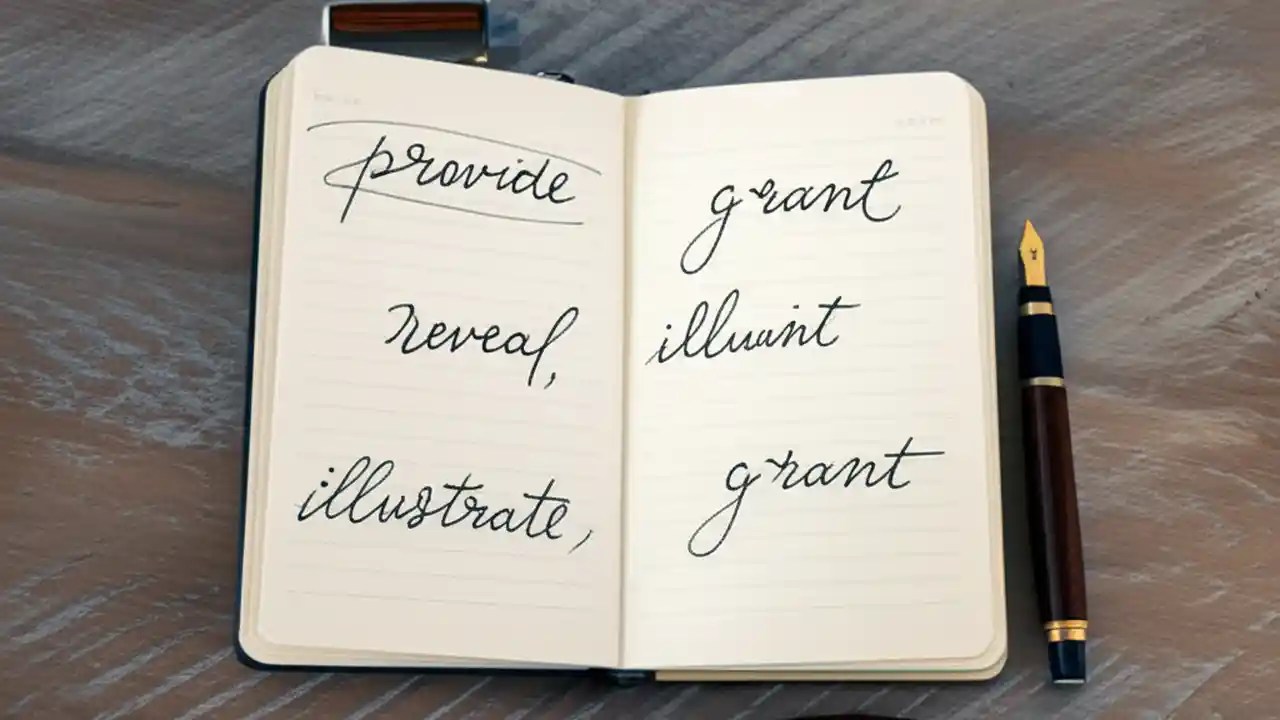 provide
reveal,
illustrate,
grant
illuaint
grant